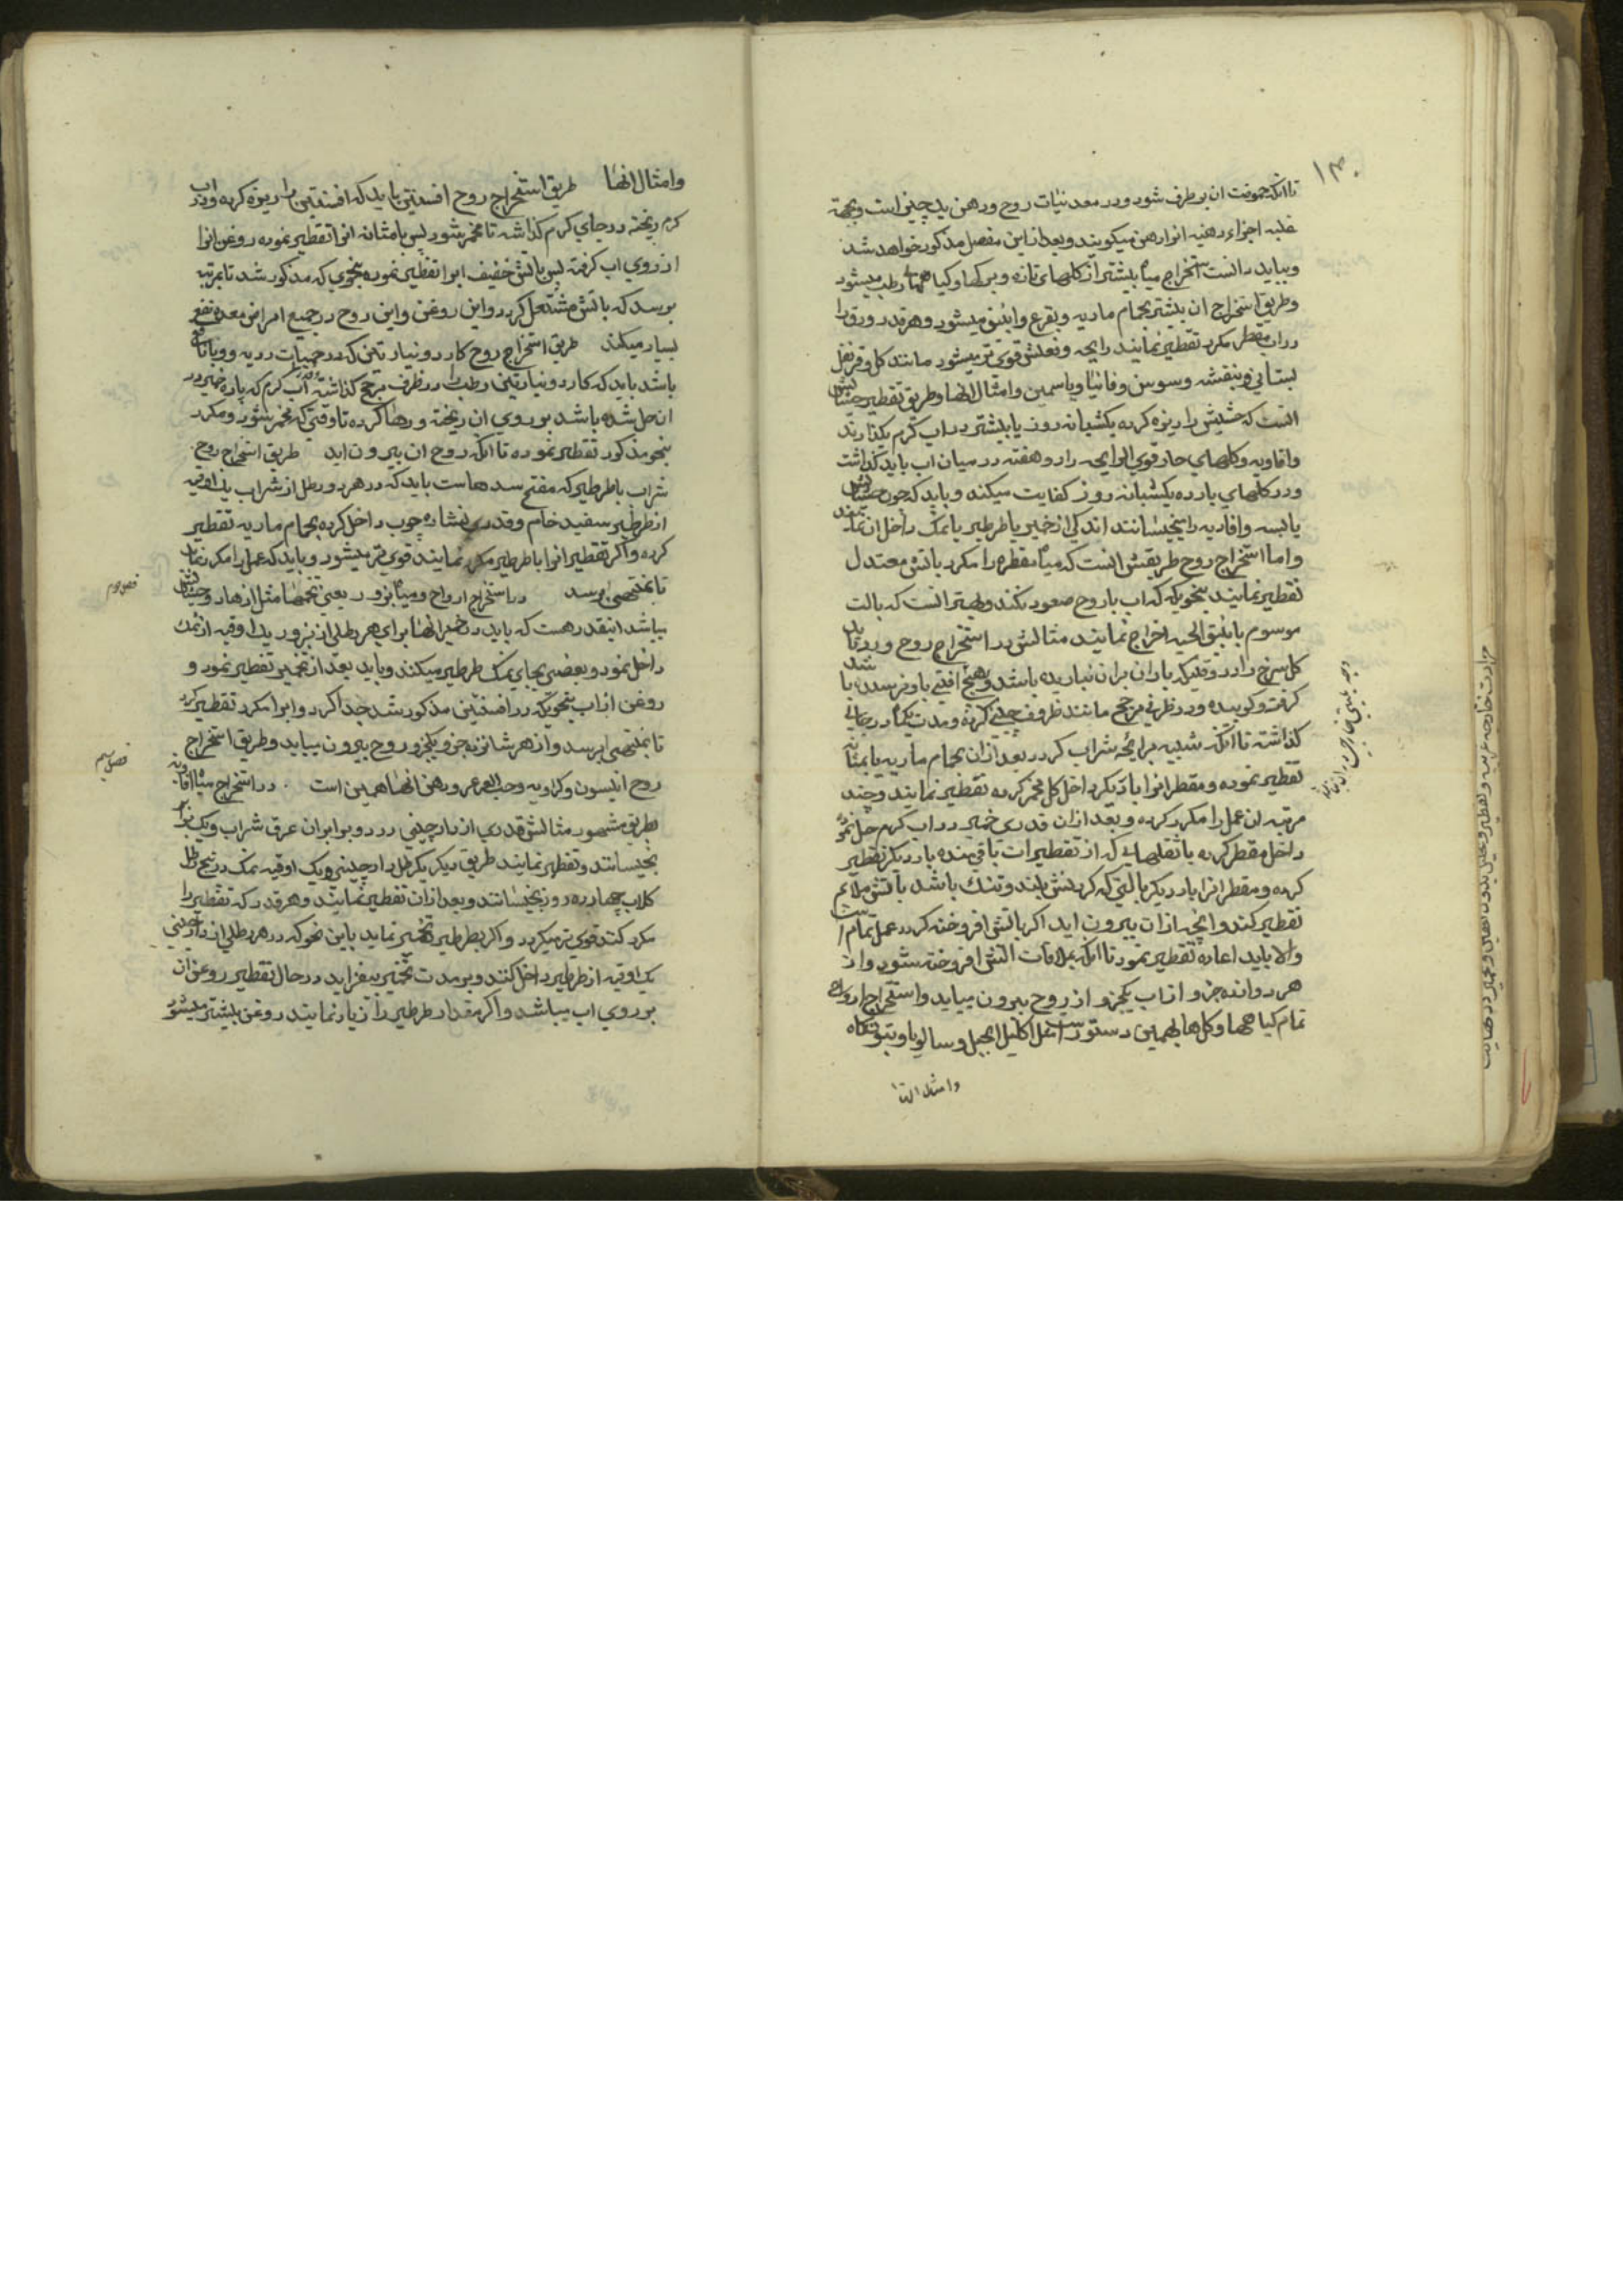 ۱۳۰
تا آنکه حموضت ان برطرف شود و در معدنیات روح و دهن یک چیز است و بجهة
غلبه اجزاء دهنیه انرا دهن میکویند و بعد از این مفصل مذکور خواهد شد
و بباید دانست استخراج میاه بیشتر از کلهای تازه و برکها و کیاههای رطب میشود
و طریق استخراج ان بیشتر بحمام ماریه و بقرع و انبیق میشود و هر قدر ورق را
در اب مقطر مکرر تقطیر نمایند رایحه و فعلش قوی تر میشود مانند کل و قرنفل
بستانی و بنفشه و سوسن و فانیا و یاسمین و امثال انها و طریق تقطیر حشایش
انست که حشیش را ریزه کرده یکشبانه روز یا بیشتر در اب کرم بکذارند
و افاویه و کلهای حار قوی الرایحه را دو هفته در میان اب باید کذاشت
و در کلهای بارده یکشبانه روز کفایت میکند و باید که چون حشایش
یابسه و افاویه را بخیسانند اندکی از خمیر یا طرطیر یا نمک داخل ان نمایند
و اما استخراج روح طریقش انست که میاه مقطره را مکرر باتش معتدل
تقطیر نمایند بنحویکه که اب با روح صعود نکند و بهتر انست که بالت
موسوم بانبیق الحیه اخراج نمایند مثالش در استخراج روح ورد باید
کل سرخ را در وقتیکه باران بران نباریده باشد و هیچ افتی باو نرسیده باشد
کرفت و کوبیده و در ظرفی مزجج مانند ظروف چینی کرده و مدت یکماه در جائی
کذاشته تا آنکه شبیه برایحه شراب کردد بعد ازان بحمام ماریه یا بمثانه
تقطیر نموده و مقطر انرا بار دیکر داخل کل مخمر کرده تقطیر نمایند و چند
مرتبه ان عمل را مکرر کرده و بعد ازان قدری خمیر در اب کرم حل نموده
داخل مقطر کرده با ثقلهای که از تقطیرات باقی مانده بار دیکر تقطیر
کرده و مقطر انرا بار دیکر بالتی که کردنش بلند و تنک باشد باتش ملایم
تقطیر کنند و انچه ازان بیرون اید اکر باتش افروخته کردد عمل تمام است
و الا باید اعاده تقطیر نمود تا آنکه بملاقات اتش افروخته شود و از
هر دوازده جزو از اب یکجزو از روح بیرون میاید و استخراج ارواح
تمام کیاهها و کلها بهمین دستور است مثل اکلیل الجبل و سالویا و
و امثال انها
و امثال انها طریق استخراج روح افسنتین باید که افسنتین را ریزه کرده و در اب
کرم ریخته در جای کرم کذاشته تا مخمر شود پس بامثانه انرا تقطیر نموده روغن انرا
از روی اب کرفته پس باتش خفیف ابرا تقطیر نموده بنحوی که مذکور شد تا بمرتبه
برسد که باتش مشتعل کردد و این روغن و این روح در جمیع امراض معده نفع
بسیار میکند طریق استخراج روح کاردونیادقن که در حمیات ردیه و وبا نافع
باشد باید که کاردونیادقن رطب را در ظرف مزجج کذاشته و اب کرم که پاره خمیر در
ان حل شده باشد بر روی ان ریخته و رها کرده تا وقتی که مخمر شود و مکرر
بنحو مذکور تقطیر نموده تا آنکه روح ان بیرون اید طریق استخراج روح
شراب با طرطیر که مفتح سدهاست باید که در هر دو رطل از شراب یک اوقیه
از طرطیر سفید خام و قدری نشاره چوب داخل کرده بحمام ماریه تقطیر
کرده و اکر تقطیر انرا با طرطیر مکرر نمایند قوی تر میشود و باید که عمل را مکرر نمایند
تا بمنتهی برسد در استخراج ارواح و میاه بزور یعنی تخمها مثل ازهار و حشایش
میباشد اینقدر هست که باید در تخمیر انها برای هر رطلی از بزور یک اوقیه از نمک
داخل نمود و بعضی بجای نمک طرطیر میکنند و باید بعد از تخمیر تقطیر نمود و
روغن از اب بنحویکه در افسنتین مذکور شد جدا کرد و ابرا مکرر تقطیر کرد
تا بمنتهی برسد و از هر شانزده جزو یکجزو روح بیرون میاید و طریق استخراج
روح انیسون و کراویه و حب العرعر و دهن انها همین است در استخراج میاه افاویه
بطریق مشهور مثالش قدری از دارچینی در دو برابر ان عرق شراب و یک برابر
بخیسانند و تقطیر نمایند طریق دیکر یکرطل دارچینی و یک اوقیه نمک در پنج رطل
کلاب چهارده روز بخیسانند و بعد ازان تقطیر نمایند و هر قدر که تقطیر را
مکرر کنند قوی تر میکردد و اکر بطرطیر تخمیر نماید باین نحو که در هر رطلی از دارچینی
یک اوقیه از طرطیر داخل کنند و بر مدت تخمیر بیفزاید در حال تقطیر روغن ان
بر روی اب میباشد و اکر مقدار طرطیر را زیاد نمایند روغن بیشتر میشود
فصل دوم
فصل سیم